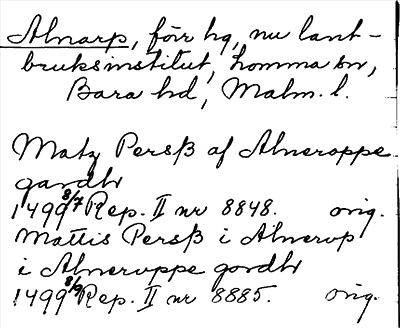 Alnarp, förr hg, nu lant-
bruksinstitut, Lomma sn,
Bara hd, Malm. l.
Matz Persß af Alneroppe
gardh
1499 8/7 Rep. II nr 8848. orig.
Mattis Persß i Alnerup
i Alneruppe gordh
1499 8/9 Rep. II nr 8885. orig.